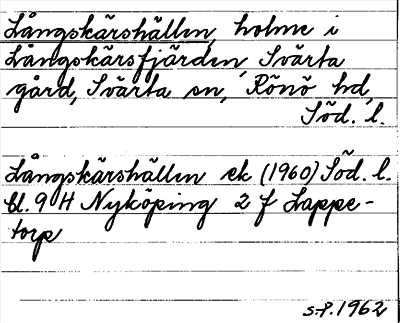 Långskärshällen, holme i
Långskärsfjärden, Svärta
gård, Svärta sn, Rönö hd,
Söd. l.
Långskärshällen ek (1960) Söd. l.
bl. 9 H Nyköping 2 f Lappe-
torp
S.P. 1962